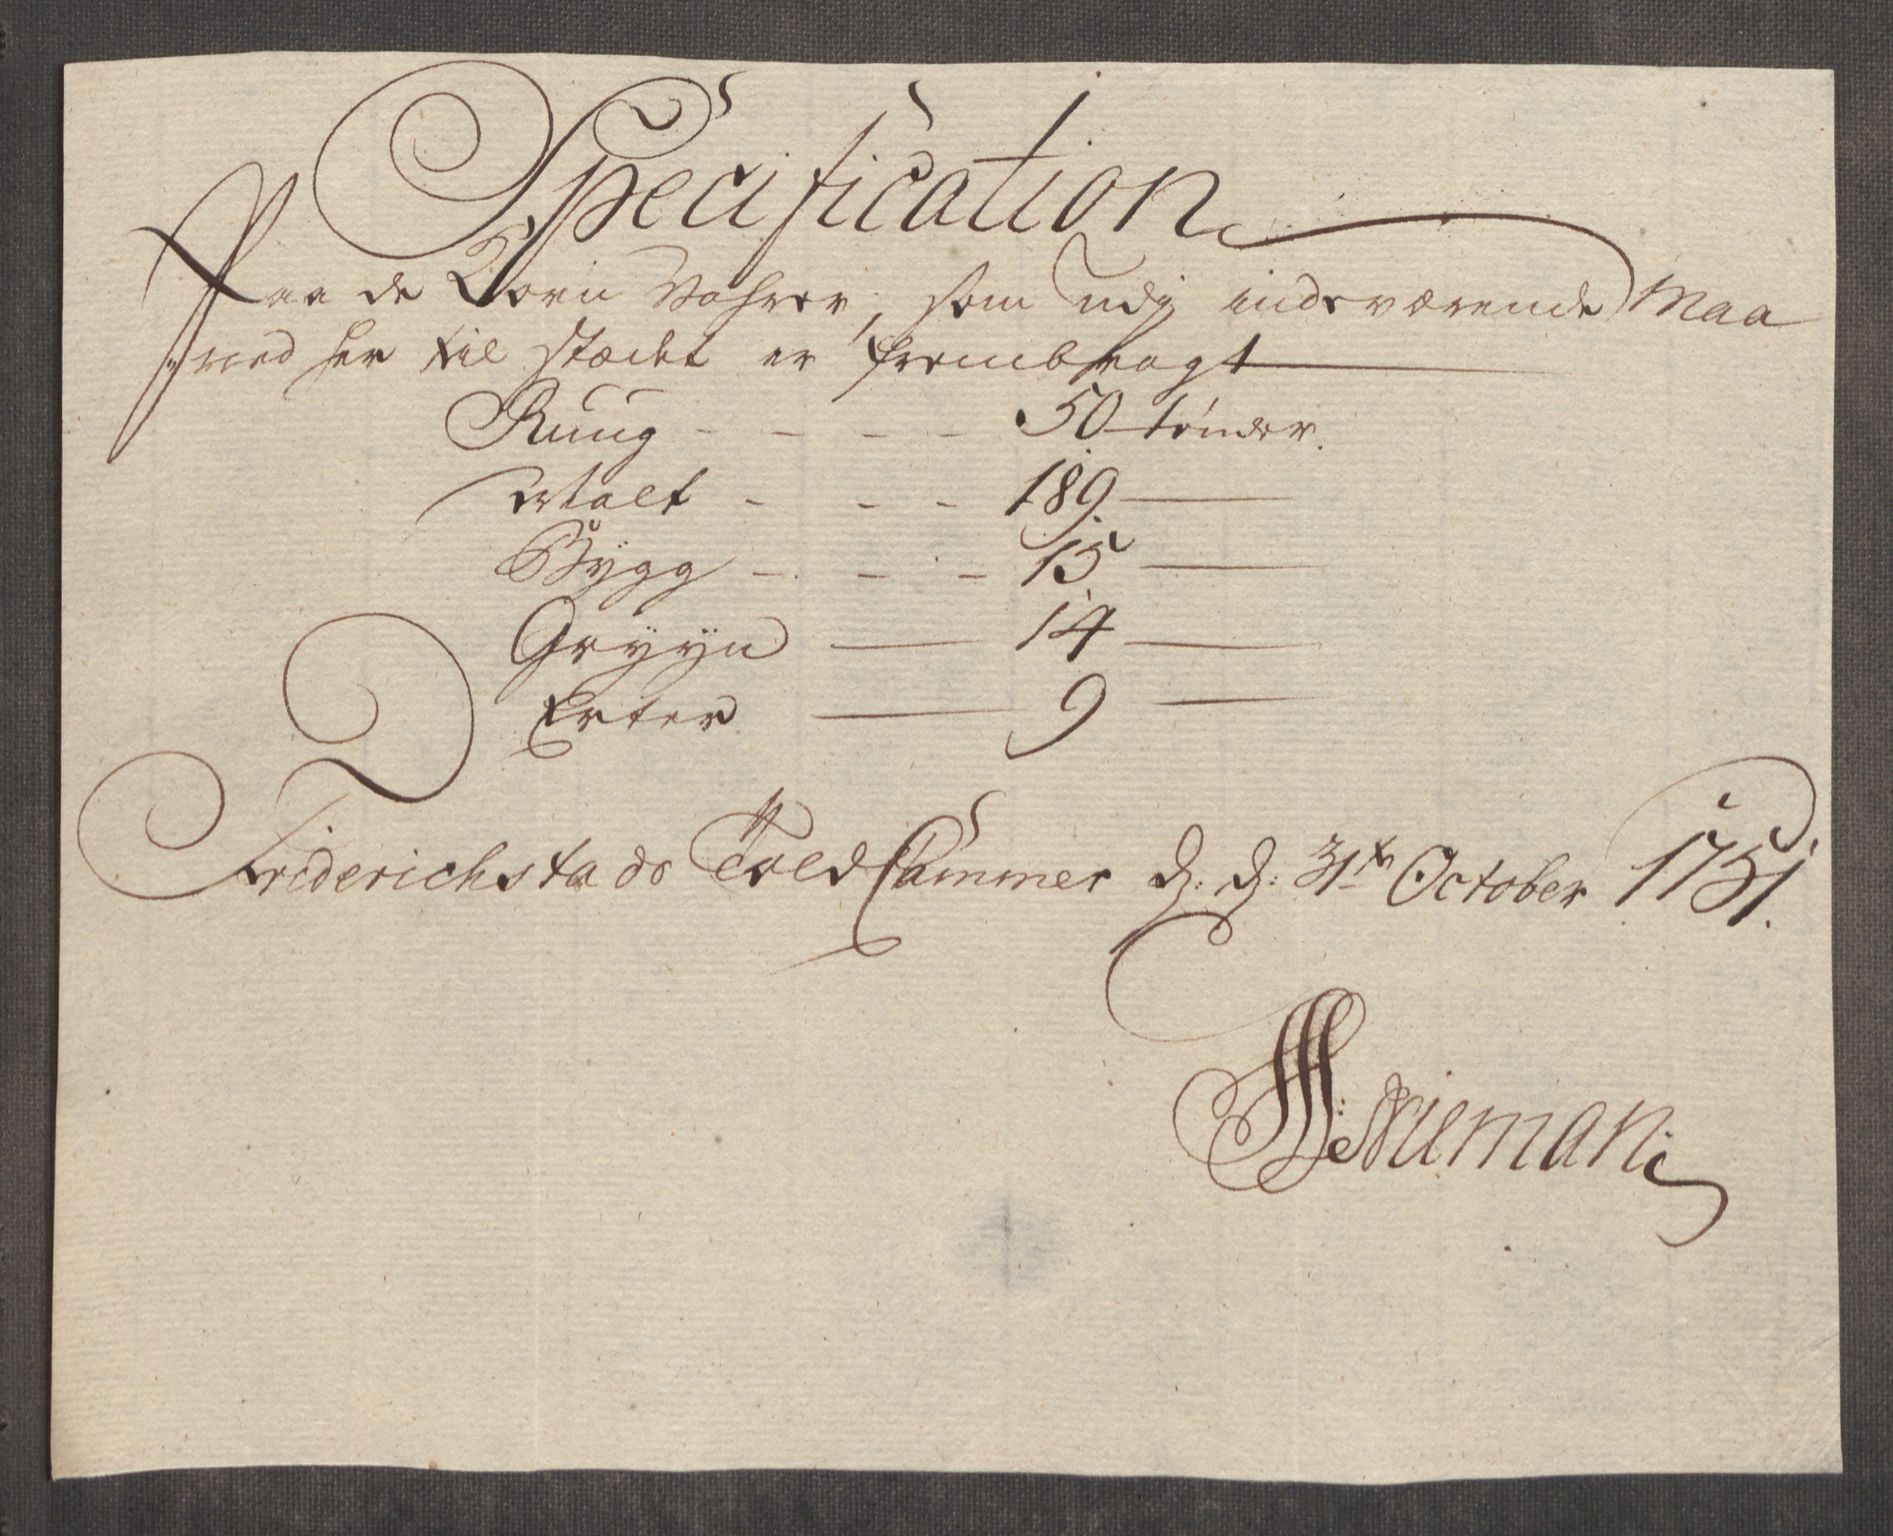 Specification
Paa de Korn Vahrer, som udj indeværende Maa
ned her til stædet er frembragt
Ruug - - - - 50 tønder.
Malt - - - 189 —
Bygg - - - 15 —
Gryyn — 14 —
Erter — 9 —
Friderichstads Told Cammer d: d: 31te October 1751.
Nieman